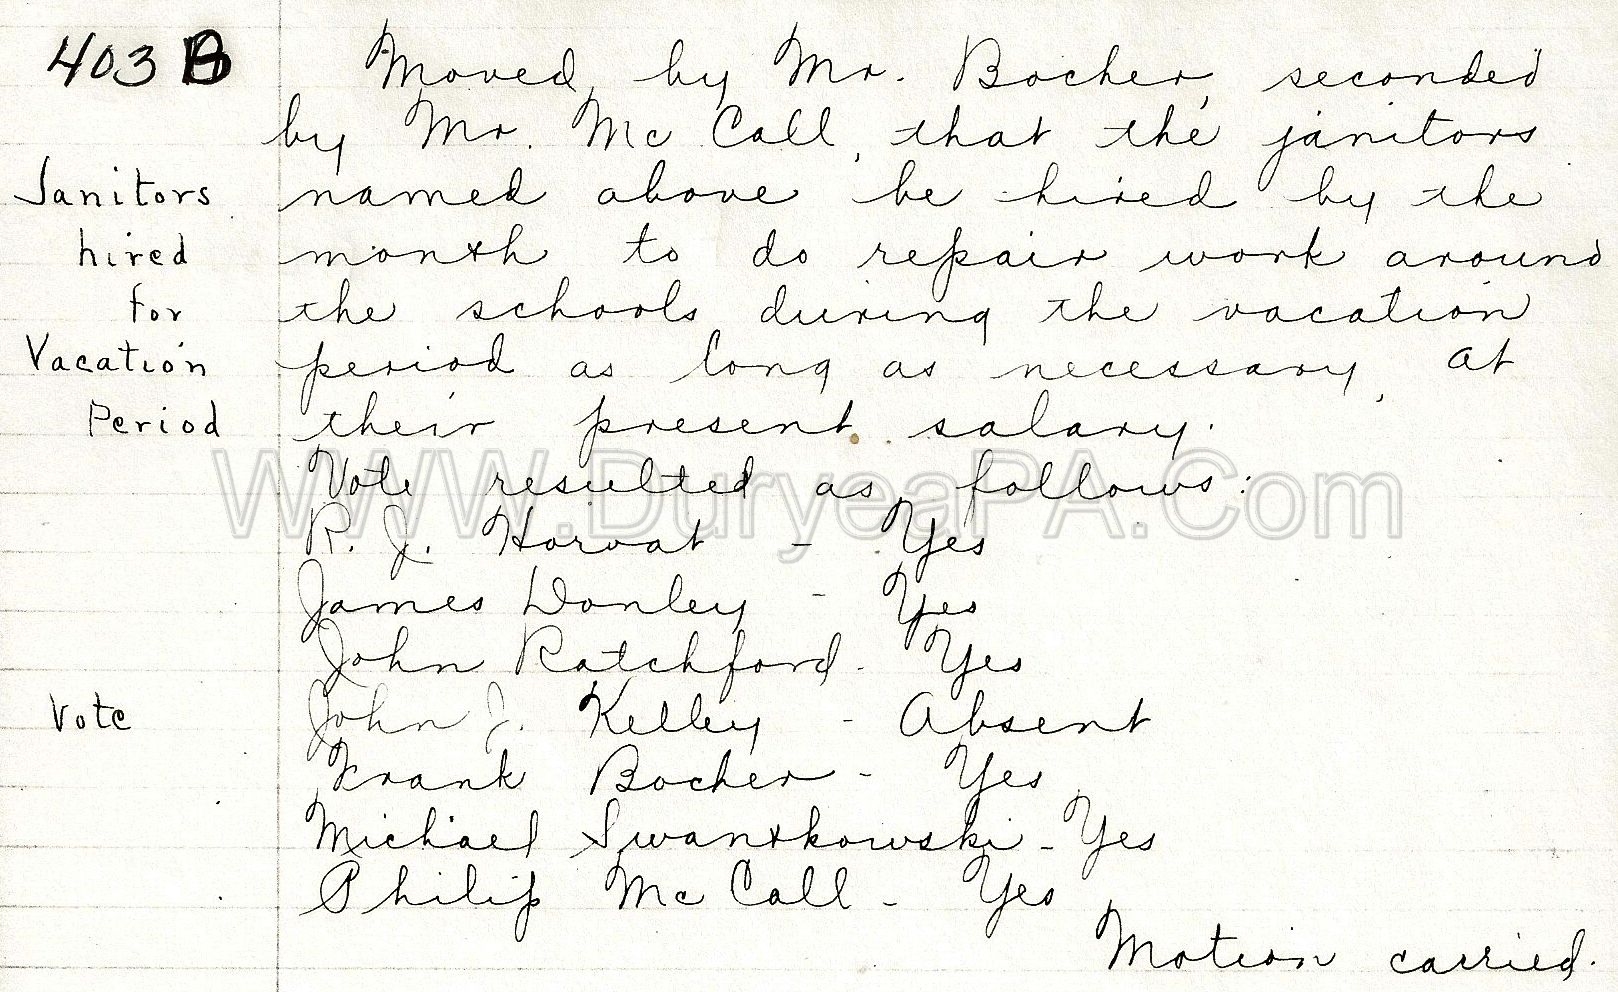 403 B
Moved by Mr. Bocher, seconded
by Mr. Mc Call, that the janitors
Janitors named above be hired by the
hired month to do repair work around
for the schools during the vacation
Vacation period as long as necessary, at
Period their present salary.
Vote resulted as follows:
WWW.DuryeaPA.Com
R. J. Horvat - Yes
James Donley - Yes
John Ratchford - Yes
Vote John J. Kelley - Absent
Frank Bocher - Yes
Michael Swantkowski - Yes
Philip Mc Call - Yes
Motion carried.